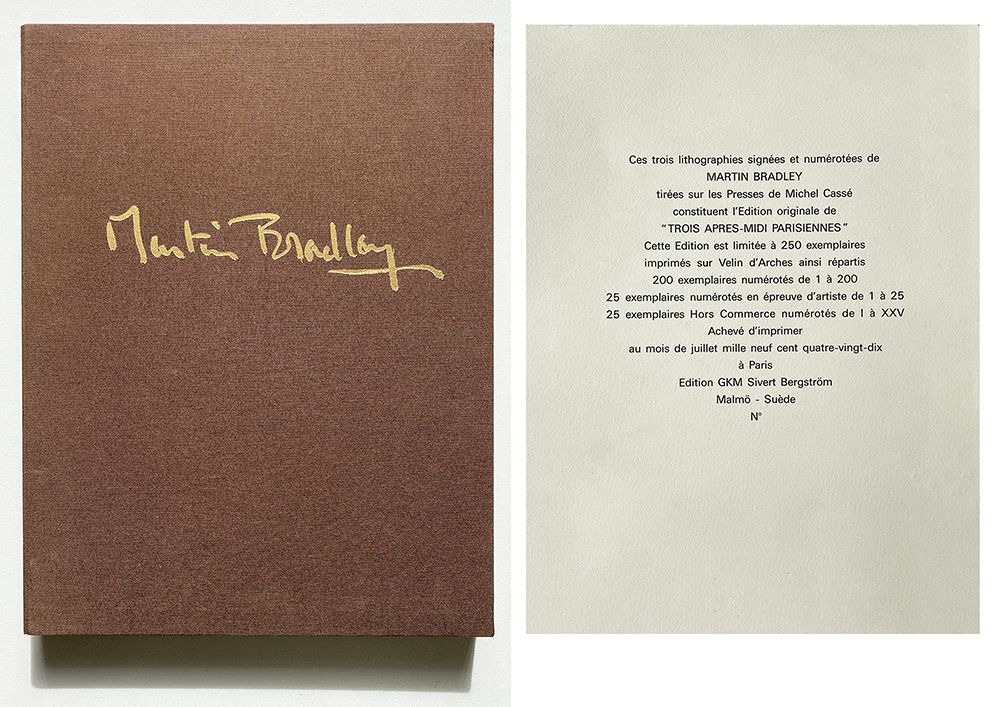 Martin Bradley
Ces trois lithographies signées et numérotées de
MARTIN BRADLEY
tirées sur les Presses de Michel Cassé
constituent l'Edition originale de
"TROIS APRES-MIDI PARISIENNES"
Cette Edition est limitée à 250 exemplaires
imprimés sur Velin d'Arches ainsi répartis
200 exemplaires numérotés de 1 à 200
25 exemplaires numérotés en épreuve d'artiste de 1 à 25
25 exemplaires Hors Commerce numérotés de I à XXV
Achevé d'imprimer
au mois de juillet mille neuf cent quatre-vingt-dix
à Paris
Edition GKM Sivert Bergström
Malmö - Suède
N°